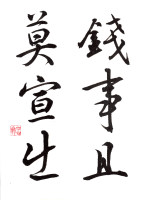 錢事且
莫宣生